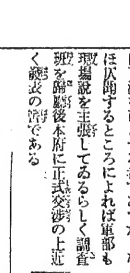 ほ仄聞するところによれば軍部も
現場説を主張してゐるらしく調査
班を帰還後本府に正式交渉の上近
く発表の筈である